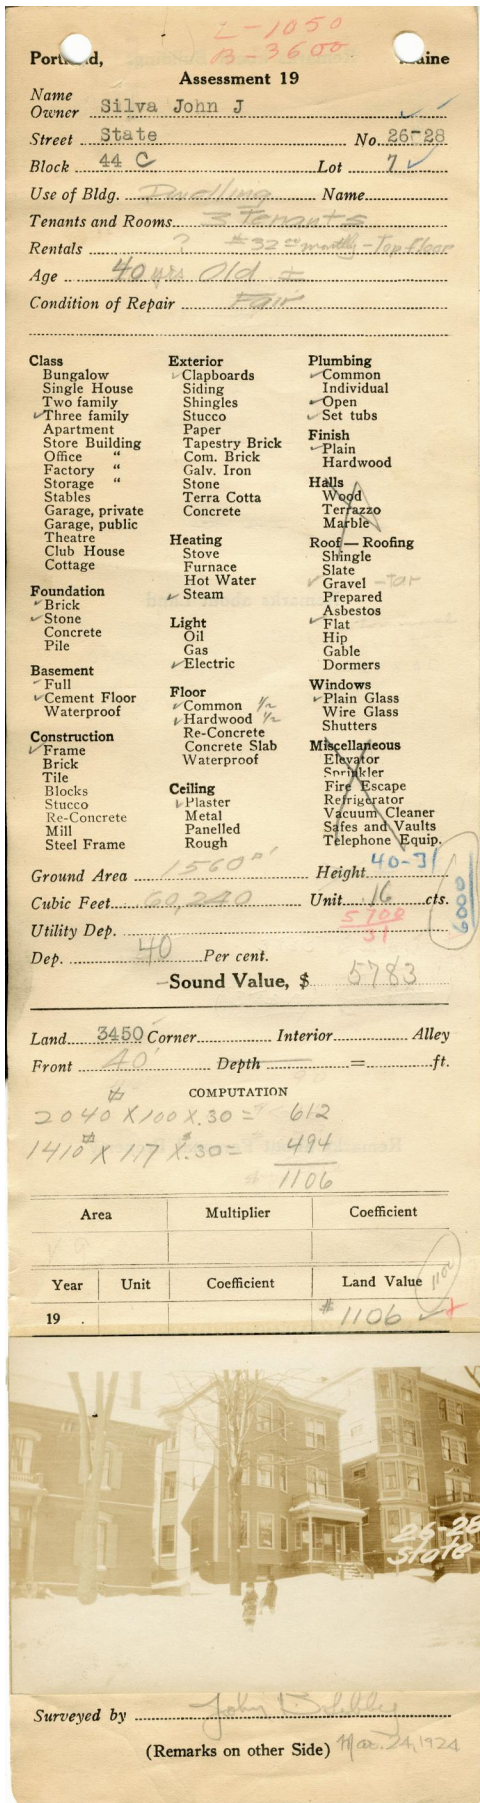 L-1050
B-3600
Portland, Maine
Assessment 19
Name
Owner Silva John J
Street State No. 26-28
Block 44 C Lot 7
Use of Bldg. Dwelling Name
Tenants and Rooms 3 Tenants
Rentals ? $32.00 monthly - Top floor
Age 40 yrs Old ±
Condition of Repair Fair
Class
Bungalow
Single House
Two family
✓ Three family
Apartment
Store Building
Office "
Factory "
Storage "
Stables
Garage, private
Garage, public
Theatre
Club House
Cottage
Foundation
✓ Brick
✓ Stone
Concrete
Pile
Basement
✓ Full
✓ Cement Floor
Waterproof
Construction
✓ Frame
Brick
Tile
Blocks
Stucco
Re-Concrete
Mill
Steel Frame
Exterior
✓ Clapboards
Siding
Shingles
Stucco
Paper
Tapestry Brick
Com. Brick
Galv. Iron
Stone
Terra Cotta
Concrete
Heating
Stove
Furnace
Hot Water
✓ Steam
Light
Oil
Gas
✓ Electric
Floor
✓ Common 1/2
✓ Hardwood 1/2
Re-Concrete
Concrete Slab
Waterproof
Ceiling
✓ Plaster
Metal
Panelled
Rough
Plumbing
✓ Common
Individual
✓ Open
✓ Set tubs
Finish
✓ Plain
Hardwood
Halls
Wood
Terrazzo
Marble
Roof — Roofing
Shingle
Slate
✓ Gravel - tar
Prepared
Asbestos
✓ Flat
Hip
Gable
Dormers
Windows
✓ Plain Glass
Wire Glass
Shutters
Miscellaneous
Elevator
Sprinkler
Fire Escape
Refrigerator
Vacuum Cleaner
Safes and Vaults
Telephone Equip.
Ground Area 1560 Height 40-31
Cubic Feet 60,240 Unit 16 cts.
6000
5700
31
Utility Dep.
Dep. 40 Per cent.
Sound Value, $ 5783
Land 3450 Corner Interior Alley
Front 40' Depth = ft.
COMPUTATION
2040 X 100 X .30 = 612
1410 X 117 X .30 = 494
1106
Area Multiplier Coefficient
Year Unit Coefficient Land Value
19 . $1106
26-28
State
Surveyed by John
(Remarks on other Side) Mar. 24, 1924